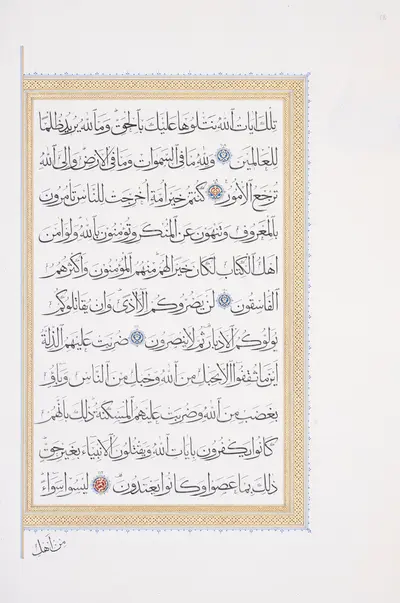 تلك آيات الله نتلوها عليك بالحق وما الله يريد ظلما
للعالمين ولله ما في السموات وما في الأرض وإلى الله
ترجع الأمور كنتم خير أمة أخرجت للناس تأمرون
بالمعروف وتنهون عن المنكر وتؤمنون بالله ولو آمن
أهل الكتاب لكان خيرا لهم منهم المؤمنون وأكثرهم
الفاسقون لن يضروكم إلا أذى وإن يقاتلوكم
يولوكم الأدبار ثم لا ينصرون ضربت عليهم الذلة
أينما ثقفوا إلا بحبل من الله وحبل من الناس وباؤ
بغضب من الله وضربت عليهم المسكنة ذلك بأنهم
كانوا يكفرون بآيات الله ويقتلون الأنبياء بغير حق
ذلك بما عصوا وكانوا يعتدون ليسوا سواء
من أهل